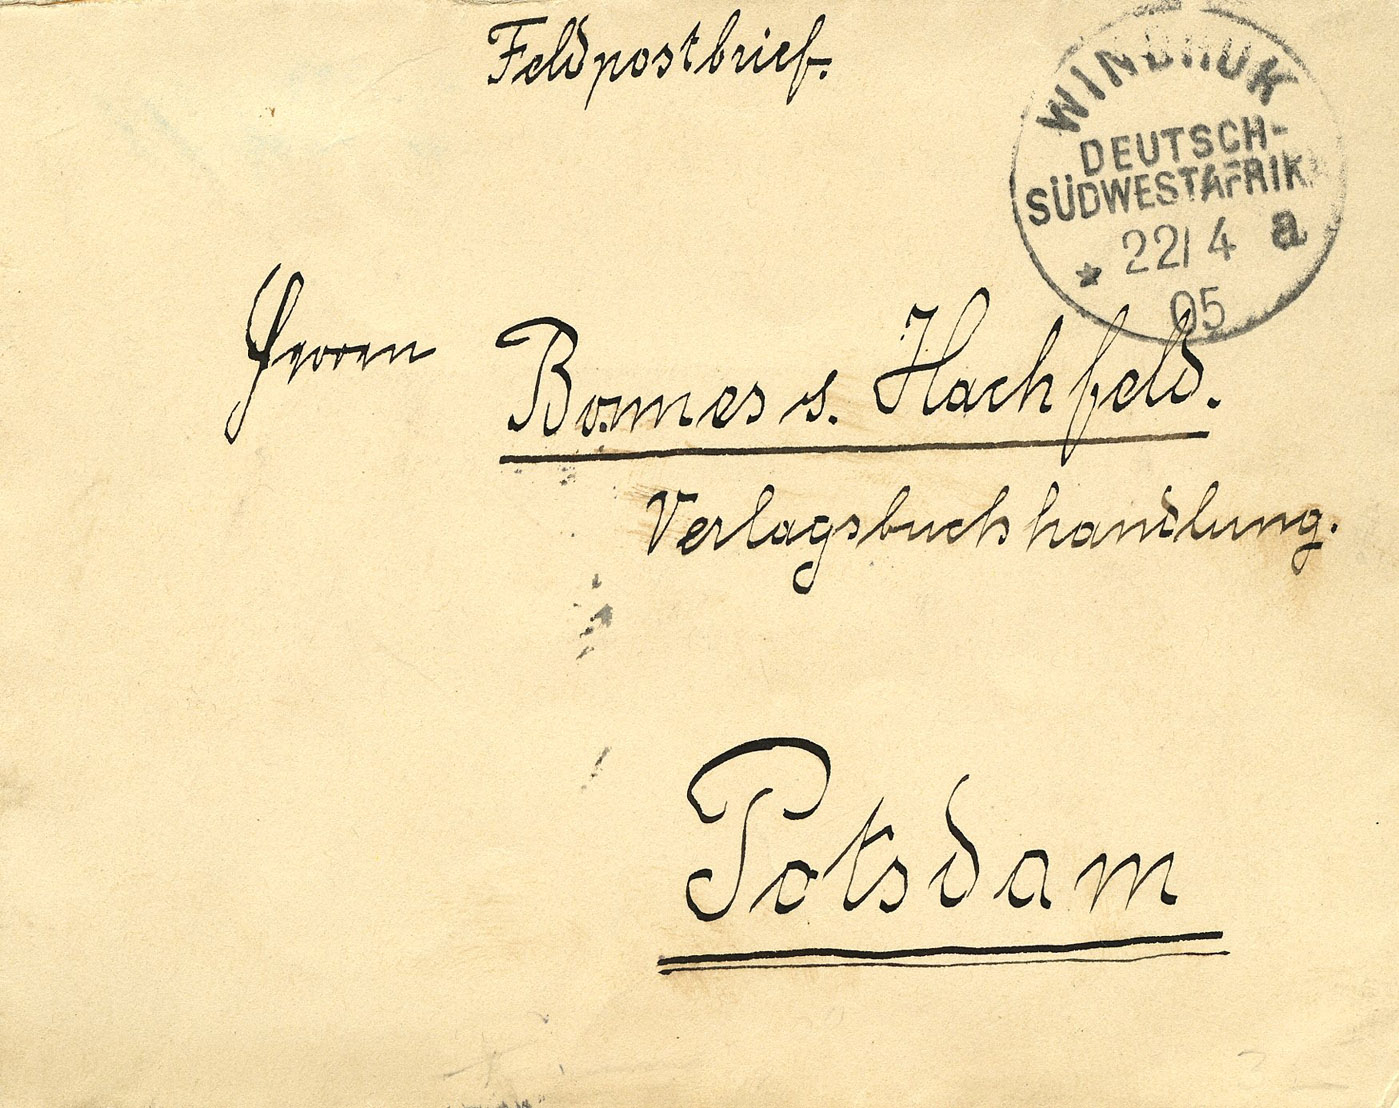 Feldpostbrief.
WINDHUK
DEUTSCH-
SÜDWESTAFRIKA
* 22/4 a
05
Herren
Bonnes u. Hachfeld.
Verlagsbuchhandlung.
Potsdam